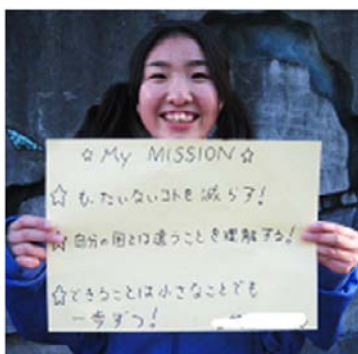 ☆ My MISSION ☆
☆ もったいないコトを減らす!
☆ 自分の国とは違うことを理解する!
☆ できることは小さなことでも
一歩ずつ!